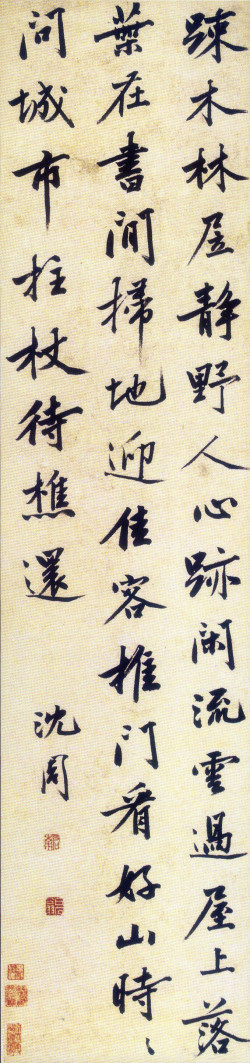 疎木林居静野人心跡閑流雲過屋上落
葉在書間掃地迎佳客推門看好山時〻
問城市拄杖待樵還
沈周